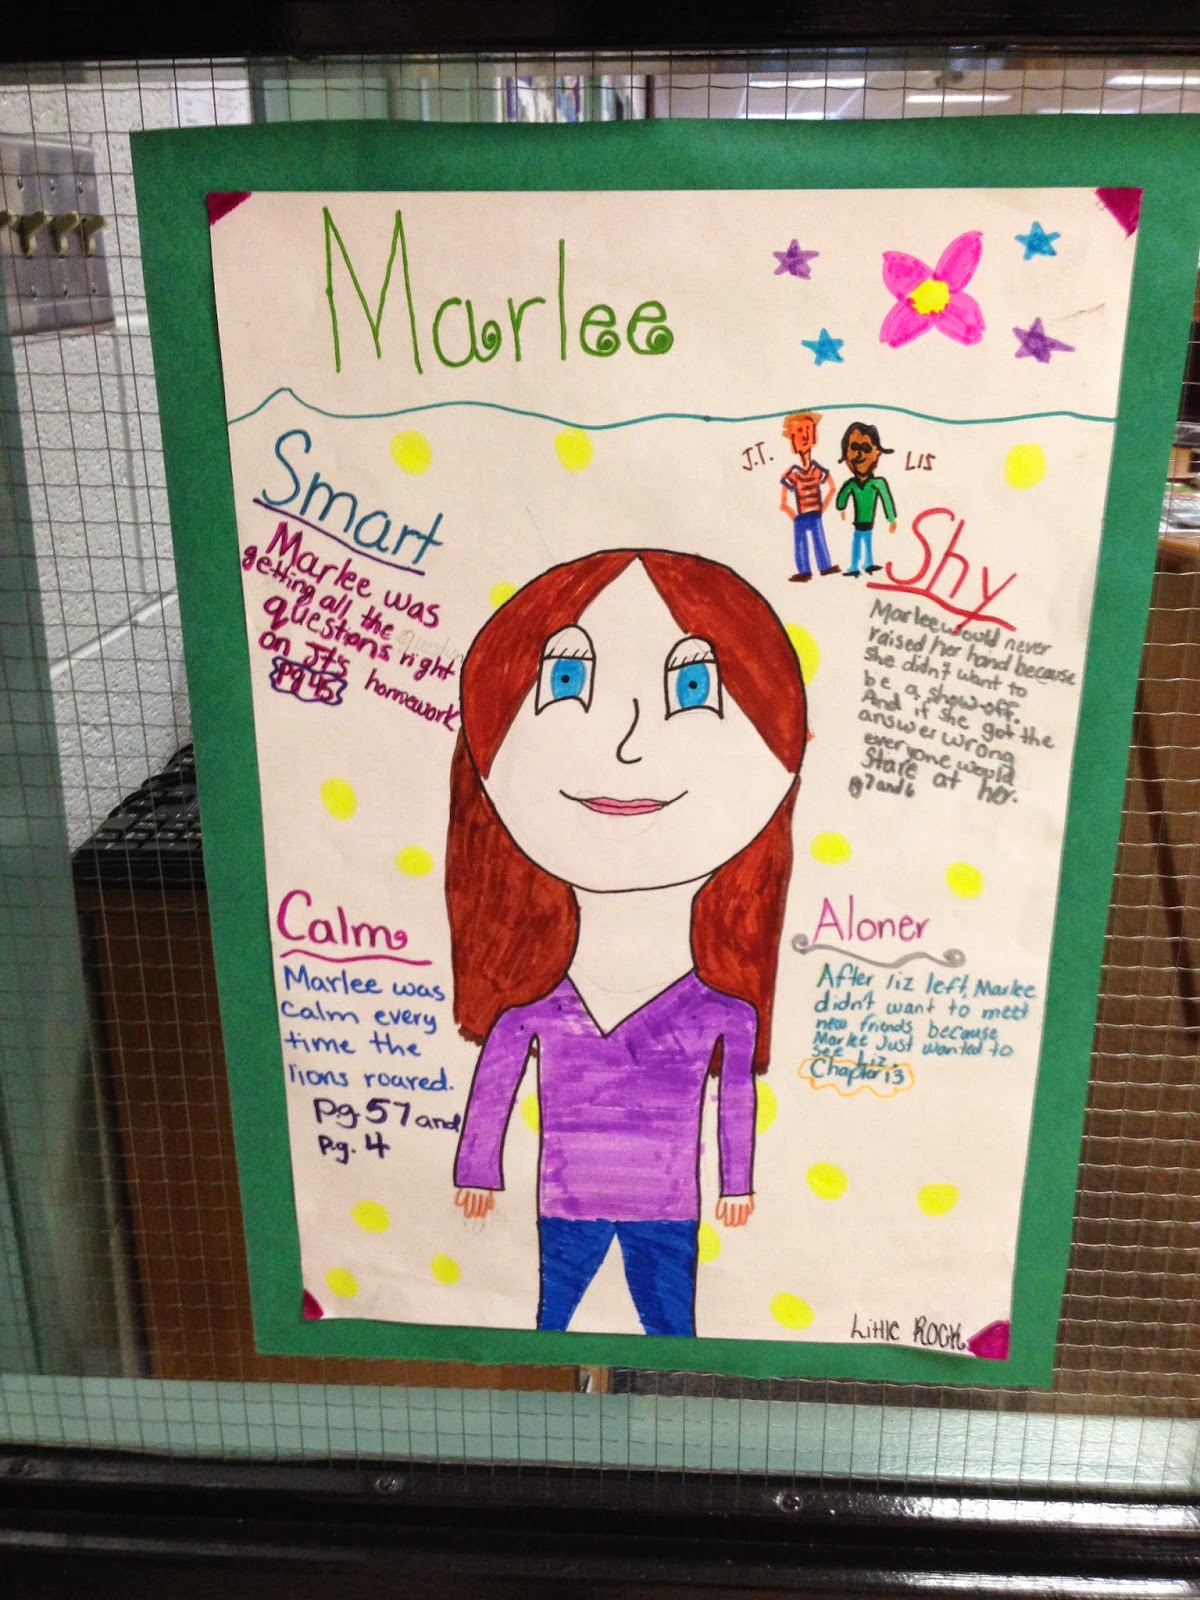 Marlee
J.T.
LIS
Smart
Marlee was
getting all the
questions right
on JT's homework
pg 45
Shy
Marlee would never
raised her hand because
she didn't want to
be a show-off.
And if she got the
answer wrong
everyone would
Stare at her.
pg 7 and 6
Calm
Marlee was
Calm every
time the
lions roared.
pg. 57 and
pg. 4
Aloner
After liz left, Marlee
didn't want to meet
new friends because
Marlee Just wanted to
see Liz.
Chapter 13
Little Rock